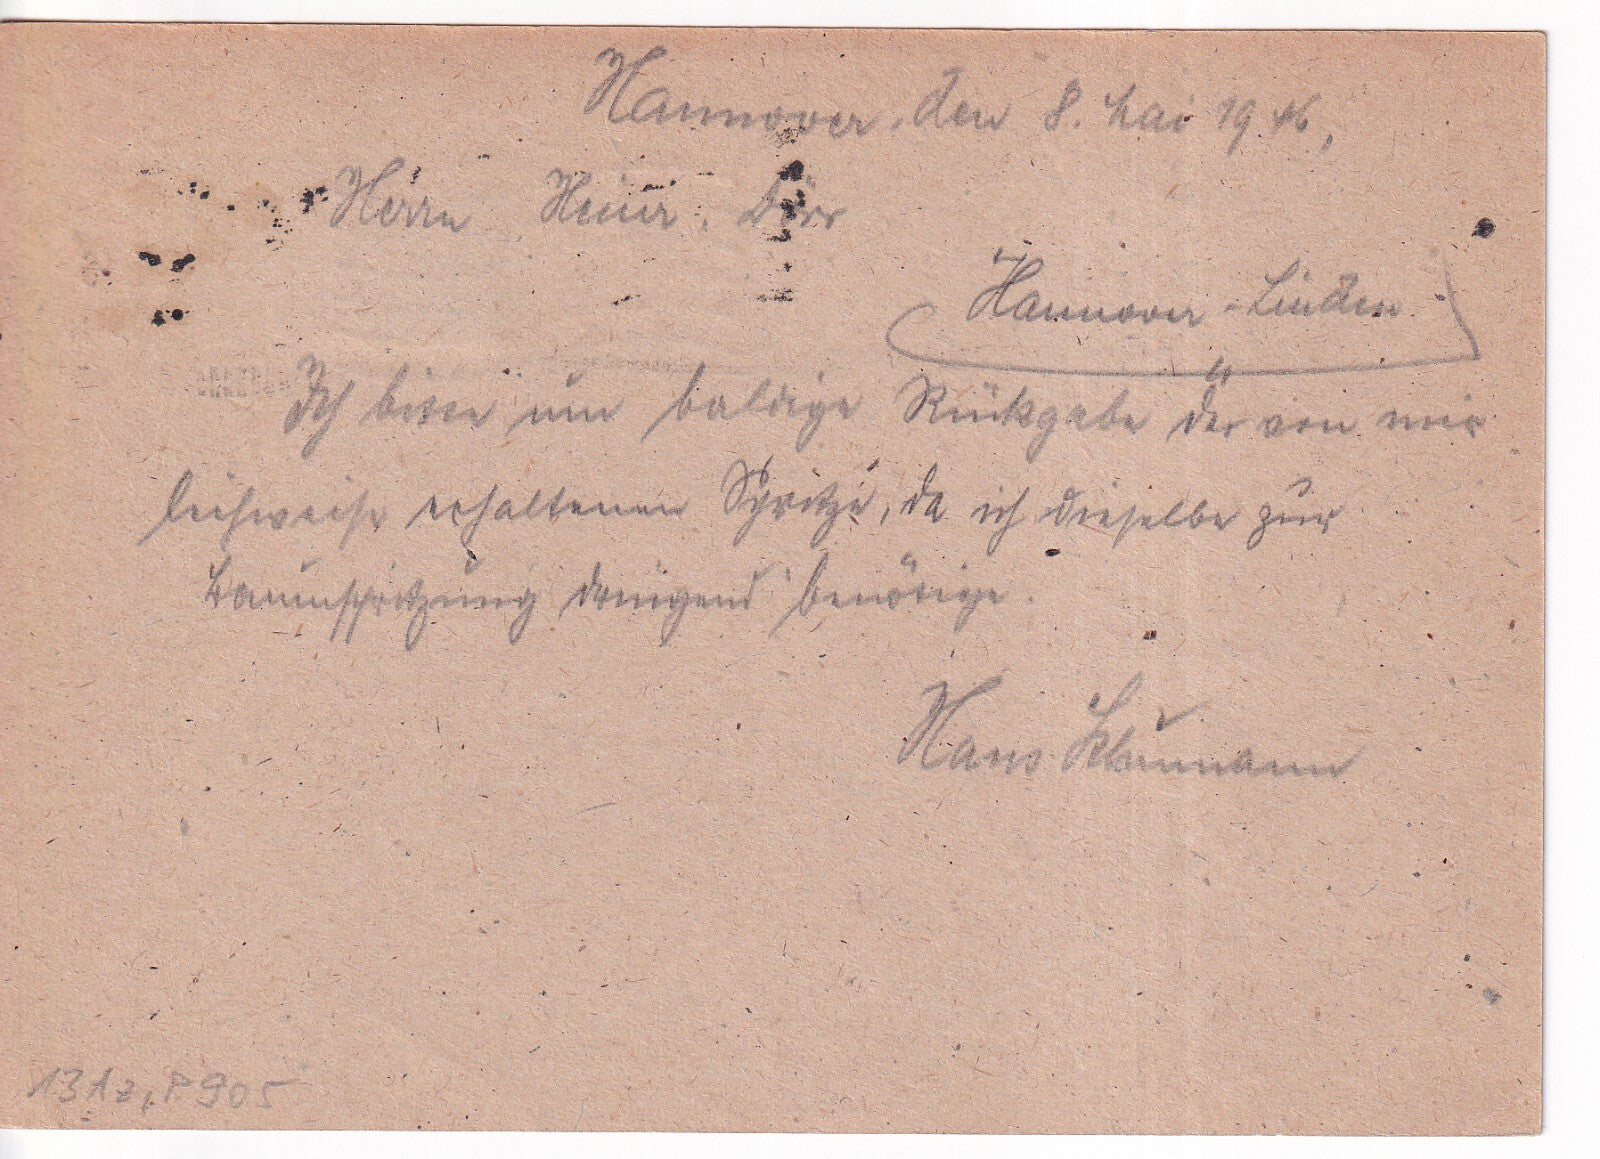 Hannover, den 8. Mai 1946,
Herrn Heinr. Dörr
Hannover-Linden
Ich bitte um baldige Rückgabe der von mir
leihweise erhaltenen Spritze, da ich dieselbe zur
Baumspritzung dringend benötige.
Hans
131z, P905